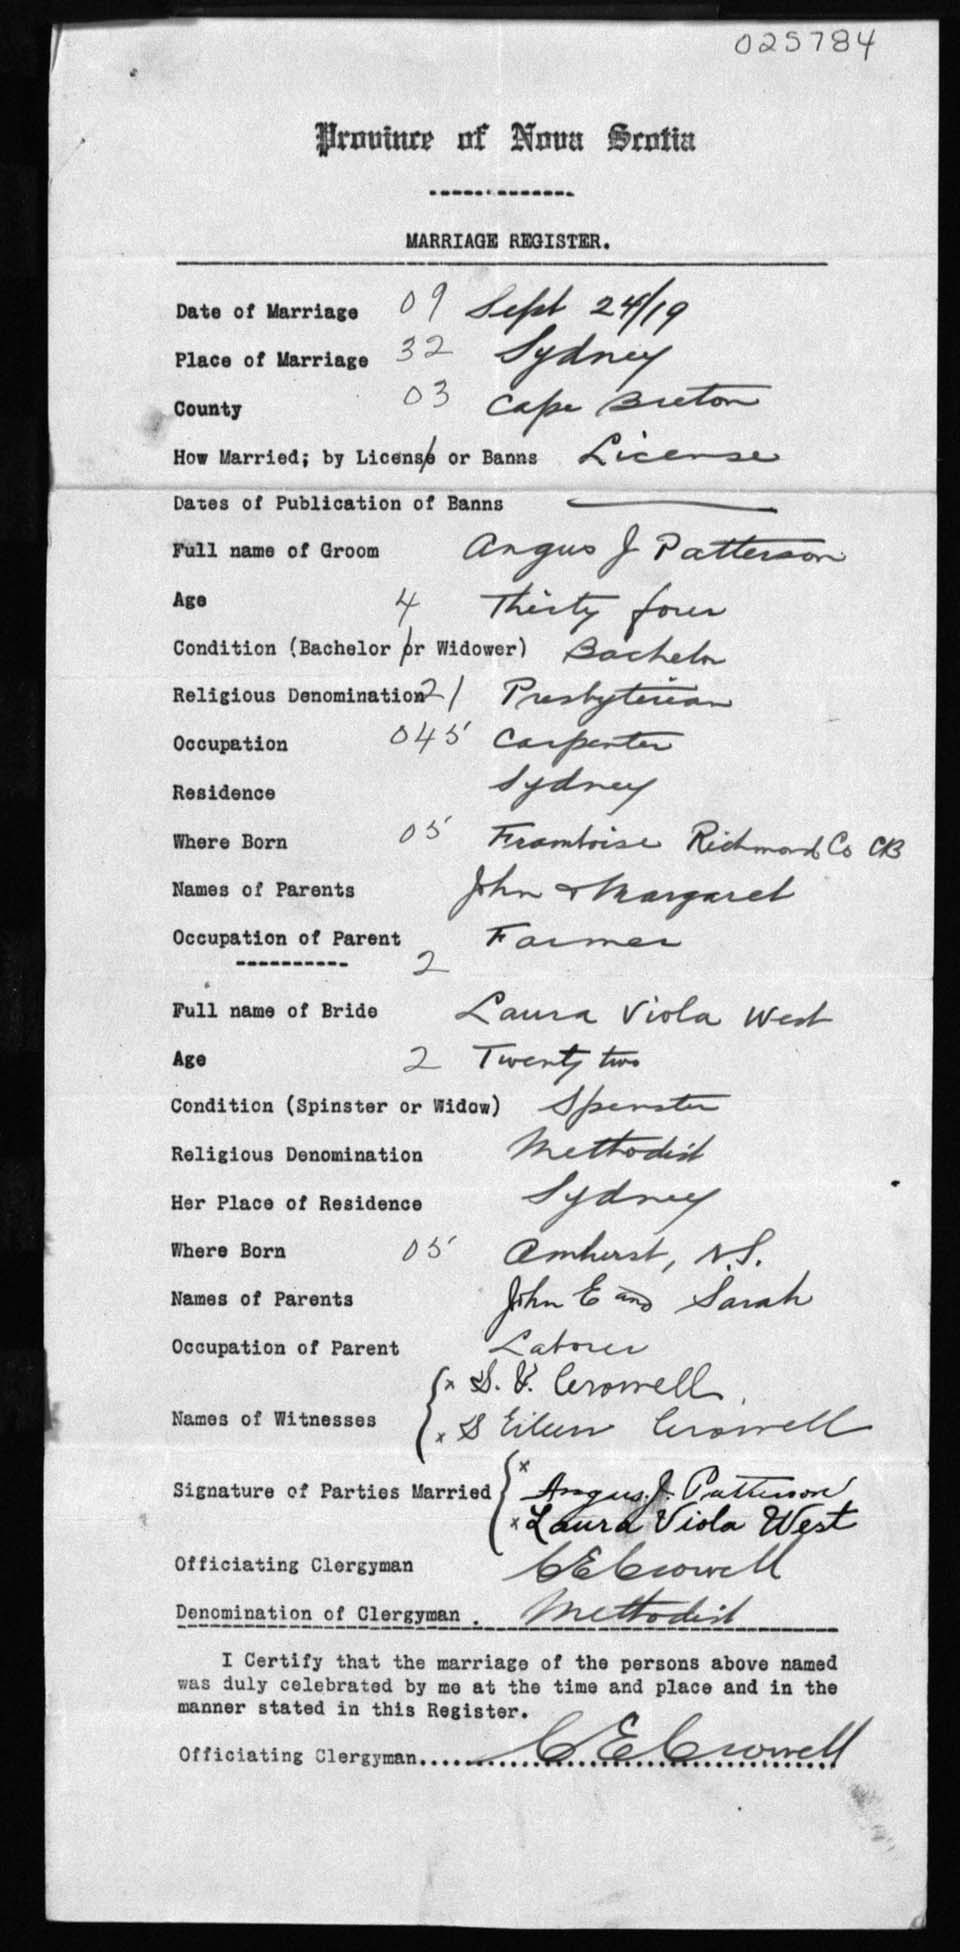 025784
Province of Nova Scotia
MARRIAGE REGISTER.
Date of Marriage 09 Sept 24/19
Place of Marriage 32 Sydney
County 03 Cape Breton
How Married; by License or Banns License
Dates of Publication of Banns
Full name of Groom Angus J Patterson
Age 4 Thirty four
Condition (Bachelor or Widower) Bachelor
Religious Denomination 21 Presbyterian
Occupation 045 Carpenter
Residence Sydney
Where Born 05 Framboise Richmond Co CB
Names of Parents John & Margaret
Occupation of Parent Farmer
2
Full name of Bride Laura Viola West
Age 2 Twenty two
Condition (Spinster or Widow) Spinster
Religious Denomination Methodist
Her Place of Residence Sydney
Where Born 05 Amherst, N.S.
Names of Parents John E and Sarah
Occupation of Parent Laborer
x S. V. Crowell
Names of Witnesses x S Eileen Crowell
Signature of Parties Married x Angus. J. Patterson
x Laura Viola West
Officiating Clergyman C E Crowell
Denomination of Clergyman. Methodist
I Certify that the marriage of the persons above named
was duly celebrated by me at the time and place and in the
manner stated in this Register.
Officiating Clergyman...... C E Crowell